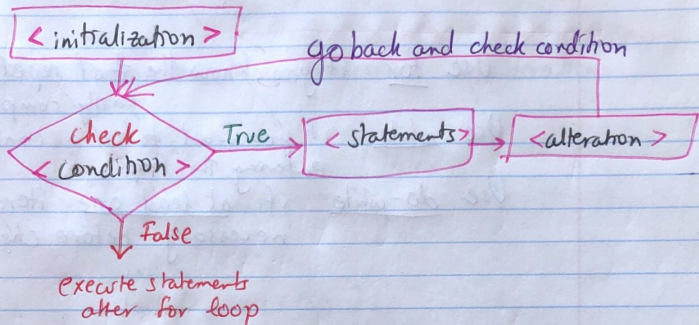 < initialization >
go back and check condition
check
< condition >
True
< statements >
< alteration >
False
execute statements
after for loop